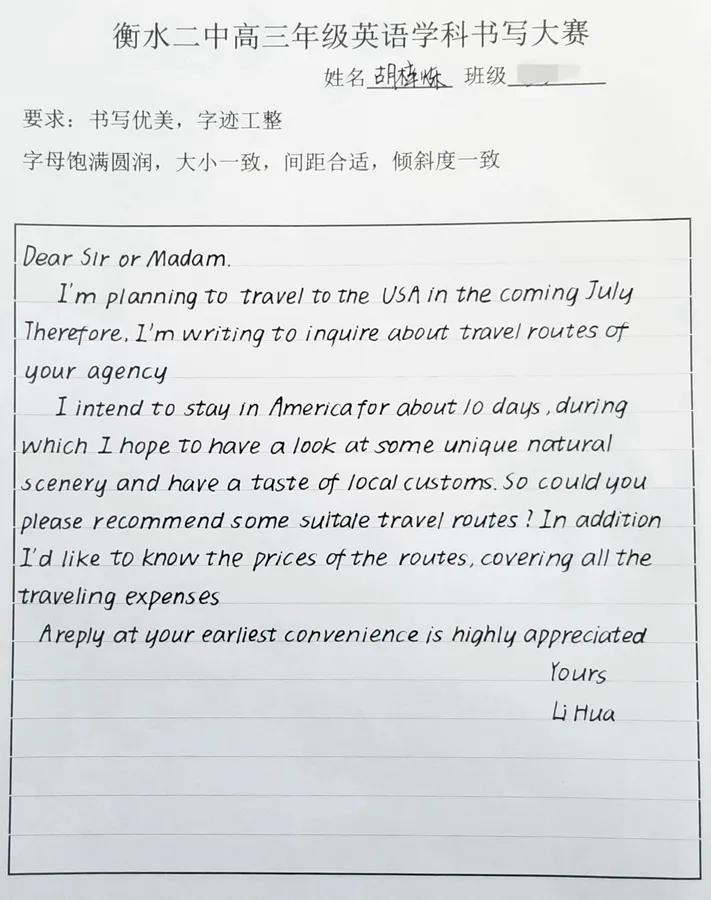 衡水二中高三年级英语学科书写大赛
姓名 胡梓烁 班级
要求：书写优美，字迹工整
字母饱满圆润，大小一致，间距合适，倾斜度一致
Dear Sir or Madam.
I'm planning to travel to the USA in the coming July
Therefore, I'm writing to inquire about travel routes of
your agency
I intend to stay in America for about 10 days, during
which I hope to have a look at some unique natural
scenery and have a taste of local customs. So could you
please recommend some suitale travel routes? In addition
I'd like to know the prices of the routes, covering all the
traveling expenses
A reply at your earliest convenience is highly appreciated
Yours
Li Hua